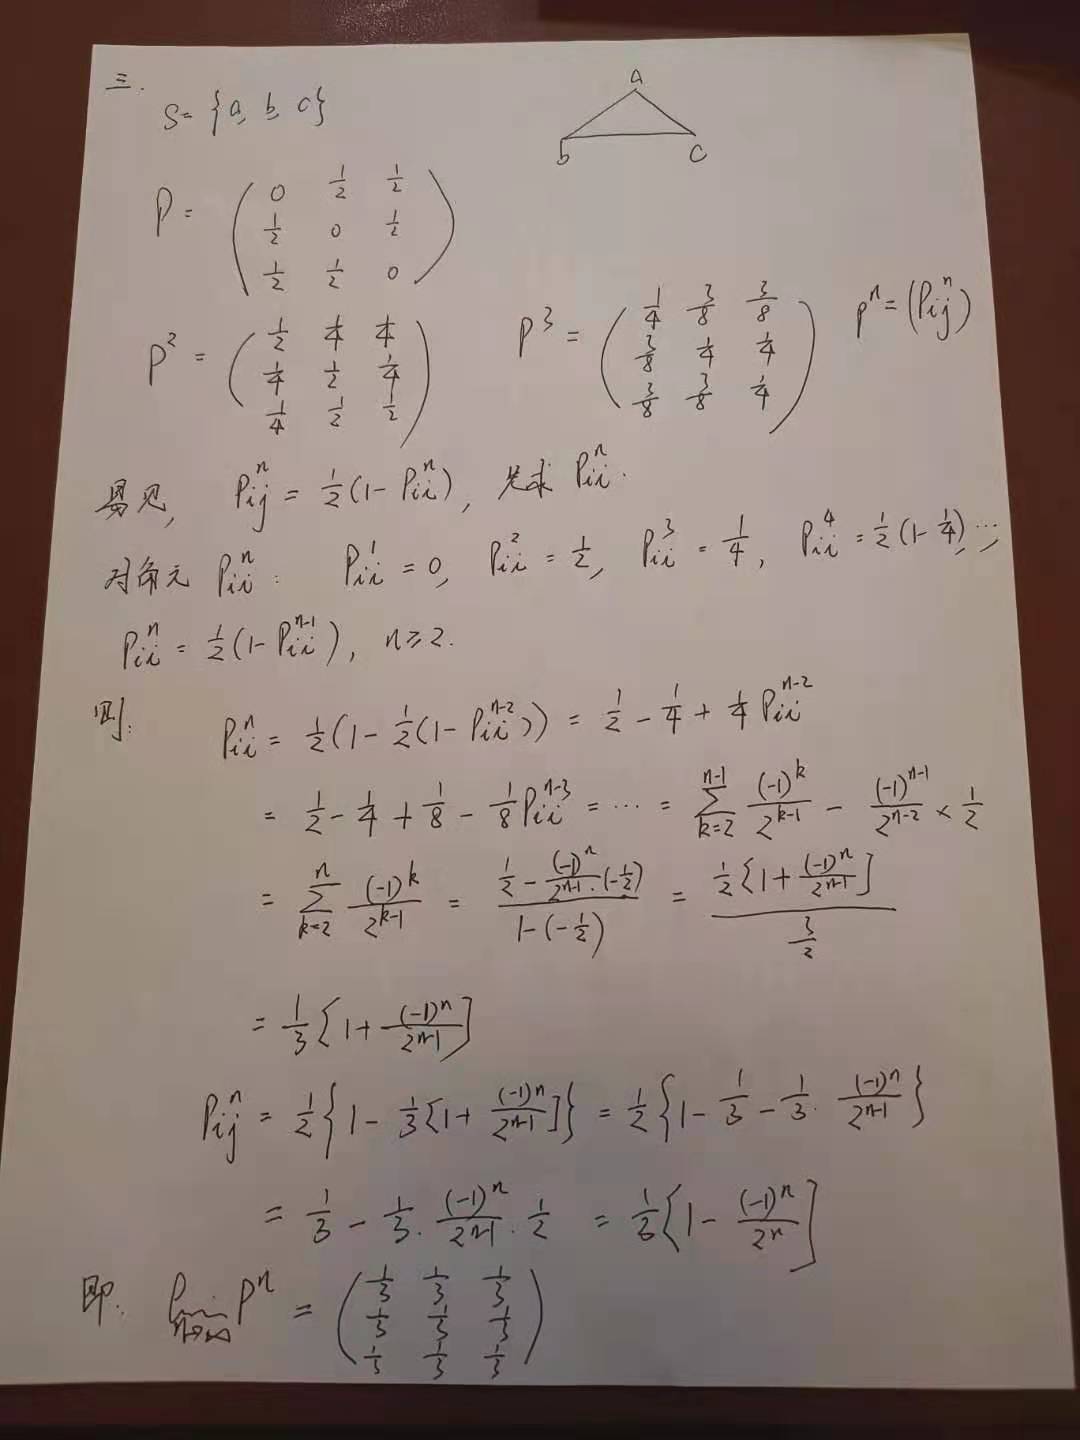 三.
S= {a, b, c}
a
b c
P = ( 0 1/2 1/2
1/2 0 1/2
1/2 1/2 0 )
P² = ( 1/2 1/4 1/4
1/4 1/2 1/4
1/4 1/2 1/2 )
P³ = ( 1/4 3/8 3/8
3/8 1/4 1/4
3/8 3/8 1/4 )
Pⁿ = (P_{ij}^{n})
易见, P_{ij}^{n} = 1/2 (1 - P_{ii}^{n}), 先求 P_{ii}^{n}.
对角元 P_{ii}^{n}: P_{ii}^{1} = 0, P_{ii}^{2} = 1/2, P_{ii}^{3} = 1/4, P_{ii}^{4} = 1/2 (1 - 1/4), …,
P_{ii}^{n} = 1/2 (1 - P_{ii}^{n-1}), n ≥ 2.
则: P_{ii}^{n} = 1/2 (1 - 1/2 (1 - P_{ii}^{n-2})) = 1/2 - 1/4 + 1/4 P_{ii}^{n-2}
= 1/2 - 1/4 + 1/8 - 1/8 P_{ii}^{n-3} = ⋯ = ∑_{k=2}^{n-1} (-1)^k / 2^{k-1} - (-1)^{n-1} / 2^{n-2} × 1/2
= ∑_{k=2}^{n} (-1)^k / 2^{k-1} = (1/2 - (-1)^n / 2^{n-1} · (-1/2)) / (1 - (-1/2)) = (1/2 [1 + (-1)^n / 2^{n-1}]) / (3/2)
= 1/3 [1 + (-1)^n / 2^{n-1}]
P_{ij}^{n} = 1/2 {1 - 1/3 [1 + (-1)^n / 2^{n-1}]} = 1/2 {1 - 1/3 - 1/3 · (-1)^n / 2^{n-1}}
= 1/3 - 1/3 · (-1)^n / 2^{n-1} · 1/2 = 1/3 [1 - (-1)^n / 2^n]
即: lim_{n→∞} Pⁿ = ( 1/3 1/3 1/3
1/3 1/3 1/3
1/3 1/3 1/3 )